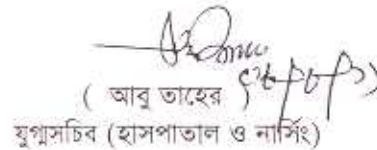 ( আবু তাহের )
যুগ্মসচিব (হাসপাতাল ও নার্সিং)